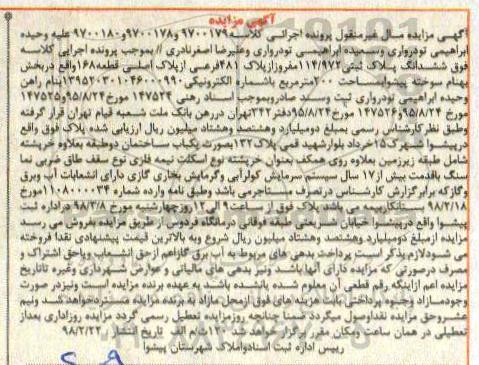 آگهی مزایده
آگهی مزایده مال غیرمنقول پرونده اجرائی کلاسه ۹۷۰۰۱۷۹و۹۷۰۰۱۷۸و۹۷۰۰۱۸۰ علیه وحیده
ابراهیمی تودرواری وسعیده ابراهیمی تودرواری وعلیرضا اصغرنادری // بموجب پرونده اجرایی کلاسه
فوق ششدانگ پلاک ثبتی ۱۱۴/۹۷۲ مفروزازپلاک ۴۸۱فرعی ازپلاک اصلی قطعه۱۶۸واقع دربخش
بهنام سوخته پیشوابمساحت ۲۰۰مترمربع باشماره الکترونیکی۱۳۹۵۲۰۳۰۱۰۴۶۰۰۰۹۹۰بنام راهن
وحیده ابراهیمی تودرواری ثبت وسند صادروبموجب اسناد رهنی ۱۴۷۵۲۴ مورخ۹۵/۸/۲۴و۱۴۷۵۲۵
مورخ ۹۵/۸/۲۴و۱۴۷۵۲۶ مورخ۹۵/۸/۲۴دفتر۲۴۲تهران دررهن بانک ملت شعبه قیام تهران قرار گرفته
وطبق نظرکارشناس رسمی بمبلغ دومیلیارد وهشتصد وهشتاد میلیون ریال ارزیابی شده پلاک فوق واقع
درپیشوا شهرک۱۵خرداد بلوارشهید قمی پلاک۱۳۲بصورت یکباب ساختمان دوطبقه بعلاوه خرپشته
شامل طبقه زیرزمین بعلاوه روی همکف بعنوان خرپشته نوع اسکلت نیمه فلزی نوع سقف طاق ضربی نما
سنگ باقدمت بیش از۱۷ سال سیستم سرمایش کولرآبی وگرمایش بخاری گازی دارای انشعابات آب وبرق
وگازکه برابرگزارش کارشناس درتصرف مستاجرمی باشد وطبق نامه وارده شماره ۱۱۰۸۰۰۰۰۳۴مورخ
۹۸/۲/۱۸ بستانکاربیمه می باشد پلاک فوق از ساعت۹ الی۱۲روزچهارشنبه مورخ ۹۸/۳/۸ دراداره ثبت
پیشوا واقع درپیشوا خیابان شریعتی طبقه فوقانی درمانگاه فردوس از طریق مزایده بفروش می رسد
مزایده ازمبلغ دومیلیارد وهشتصد وهشتاد میلیون ریال شروع وبه بالاترین قیمت پیشنهادی نقدا فروخته
می شودلازم بذکر است پرداخت بدهی های مربوط به آب برق گازاعم ازحق انشعاب ویاحق اشتراک و
مصرف درصورتی که مزایده دارای آنها باشد ونیز بدهی های مالیاتی و عوارض شهرداری وغیره تاتاریخ
مزایده اعم ازاینکه رقم قطعی آن معلوم شده یانشده باشد به عهده برنده مزایده است ونیزدر صورت
وجودمازاد وجوه پرداختی بابت هزینه های فوق ازمحل مازاد به برنده مزایده مستردخواهد شد ونیم
عشروحق مزایده نقداوصول میگردد ضمنا چنانچه روزمزایده تعطیل رسمی گردد مزایده روزاداری بعداز
تعطیلی در همان ساعت ومکان مقرر برگزار خواهد شد ۱۲۰ث/م الف تاریخ انتشار ۹۸/۲/۲۲
رییس اداره ثبت اسنادواملاک شهرستان پیشوا